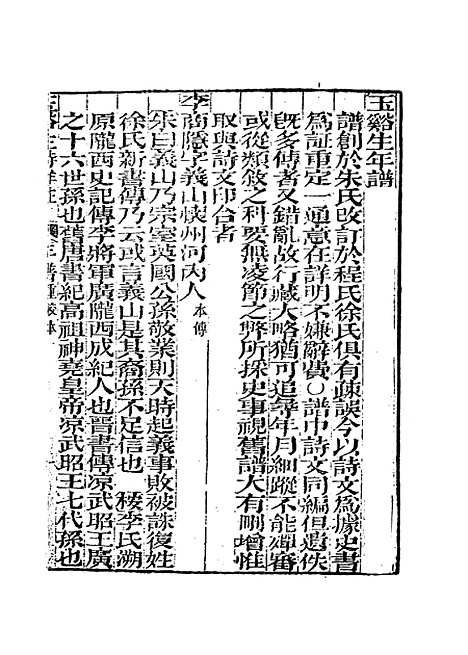 玉谿生年譜
譜創於朱氏改訂於程氏徐氏俱有疎誤今以詩文爲據史書
爲証重定一通意在詳明不嫌辭費○譜中詩文同編但遺佚
旣多傳者又錯亂故行藏大略猶可追尋年月細蹤不能殫審
或從類敘之利要無凌節之弊所採史事視舊譜大有刪增惟
取與詩文印合者
李商隱字義山懷州河內人本傳
朱曰義山乃宗室英國公孫敬業則天時起義事敗被誅復姓
徐氏新書傳乃云或言義山是其裔孫不足信也 按李氏溯
原隴西史記傳李將軍廣隴西成紀人也晉書傳凉武昭王廣
之十六世孫也舊唐書紀高祖神堯皇帝凉武昭王七代孫也